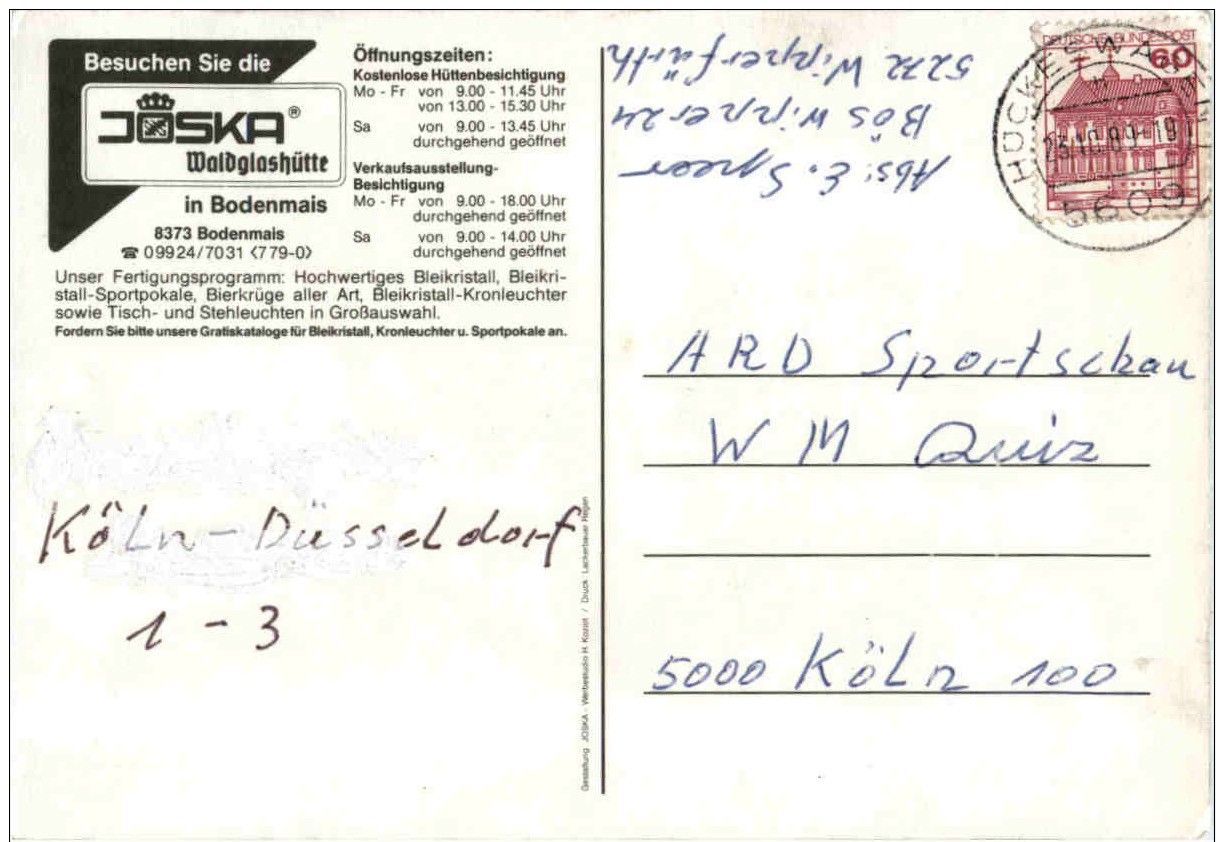 Besuchen Sie die
JOSKA®
Waldglashütte
in Bodenmais
8373 Bodenmais
☎ 09924/7031 <779-0>
Öffnungszeiten:
Kostenlose Hüttenbesichtigung
Mo - Fr von 9.00 - 11.45 Uhr
von 13.00 - 15.30 Uhr
Sa von 9.00 - 13.45 Uhr
durchgehend geöffnet
Verkaufsausstellung-
Besichtigung
Mo - Fr von 9.00 - 18.00 Uhr
durchgehend geöffnet
Sa von 9.00 - 14.00 Uhr
durchgehend geöffnet
Unser Fertigungsprogramm: Hochwertiges Bleikristall, Bleikri-
stall-Sportpokale, Bierkrüge aller Art, Bleikristall-Kronleuchter
sowie Tisch- und Stehleuchten in Großauswahl.
Fordern Sie bitte unsere Gratiskataloge für Bleikristall, Kronleuchter u. Sportpokale an.
Köln - Düsseldorf
1 - 3
Gestaltung JOSKA - Werbestudio H. Koziol / Druck Lackerbauer Regen
Abs: E. Speer
Bös Wipper 24
5272 Wipperfürth
DEUTSCHE BUNDESPOST
60
23.10.89-19
5609
ARD Sportschau
WM Quiz
5000 Köln 100